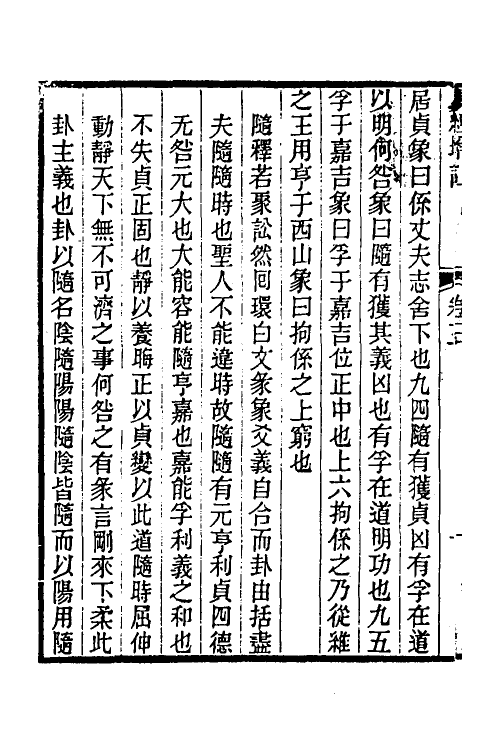 居貞象曰係丈夫志舍下也九四隨有獲貞凶有孚在道
以明何咎象曰隨有獲其義凶也有孚在道明功也九五
孚于嘉吉象曰孚于嘉吉位正中也上六拘係之乃從維
之王用亨于西山象曰拘係之上窮也
隨釋若聚訟然囘環白文彖象爻義自合而卦由括盡
夫隨隨時也聖人不能違時故隨隨有元亨利貞四德
无咎元大也大能容能隨亨嘉也嘉能孚利義之和也
不失貞正固也靜以養晦正以貞變以此道隨時屈伸
動靜天下無不可濟之事何咎之有彖言剛來下柔此
卦主義也卦以隨名陰隨陽陽隨陰皆隨而以陽用隨